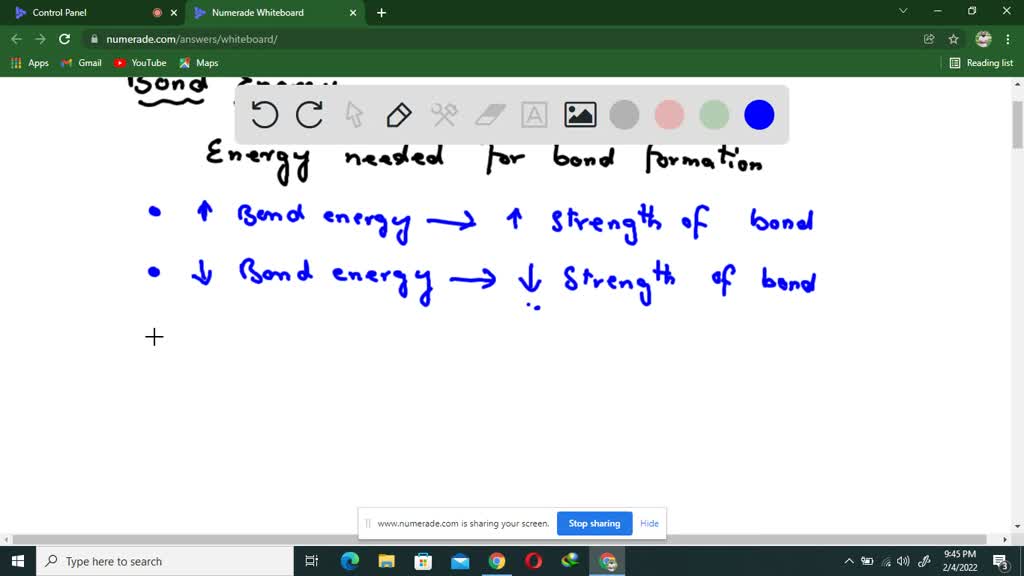 Control Panel
Numerade Whiteboard
numerade.com/answers/whiteboard/
Apps Gmail YouTube Maps Reading list
Bond Energy
A
Energy needed for bond formation
• ↑ Bond energy → ↑ Strength of bond
• ↓ Bond energy → ↓ Strength of bond
www.numerade.com is sharing your screen. Stop sharing Hide
Type here to search
9:45 PM
2/4/2022
3